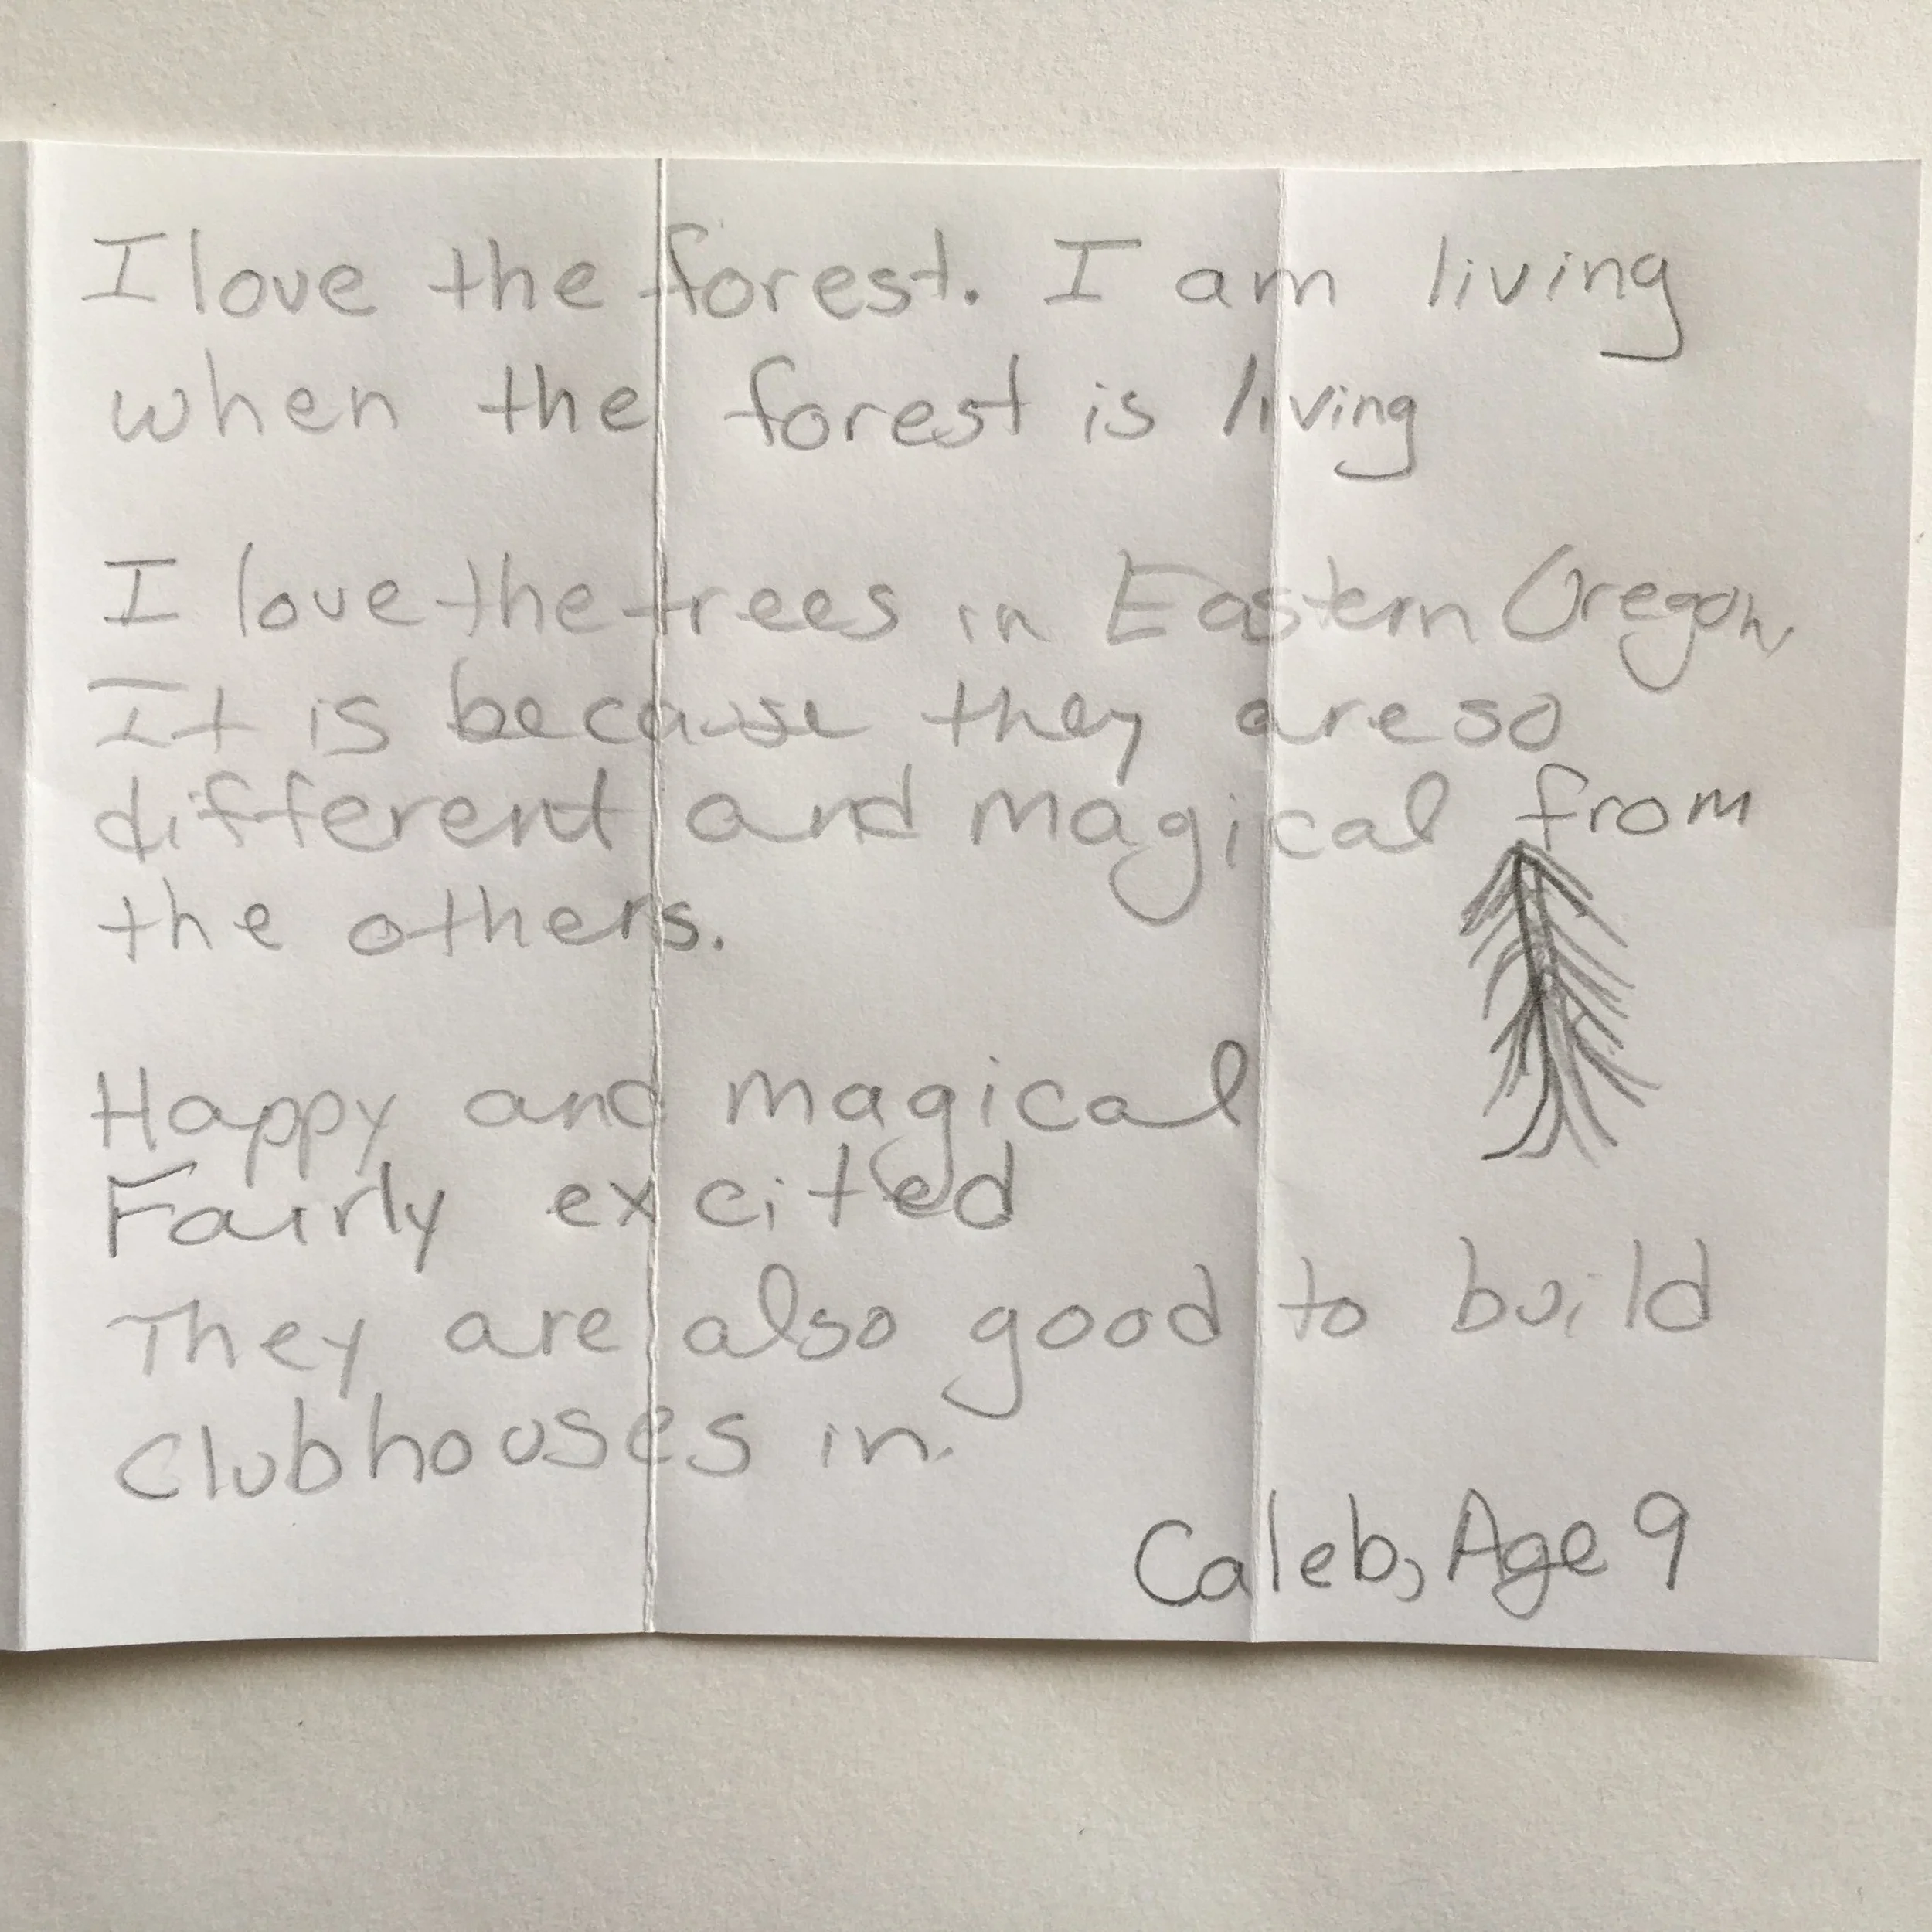 I love the forest. I am living
when the forest is living
I love the trees in Eastern Oregon,
It is because they are so
different and magical from
the others.
Happy and magical
Fairly excited
They are also good to build
Clubhouses in.
Caleb, Age 9